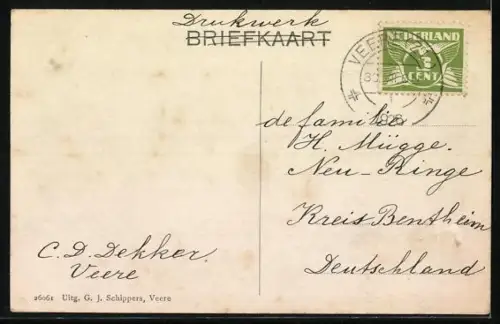 Drukwerk
BRIEFKAART
NEDERLAND
CENT
de familie
H. Mügge.
Neu-Ringe
Kreis Bentheim
Deutschland
C. D. Dekker.
Veere
26061 Uitg. G. J. Schippers, Veere